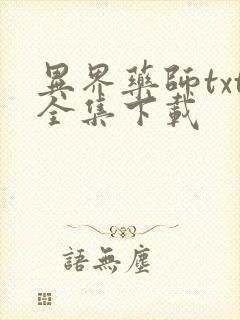 異界藥師txt
全集下載
語無塵